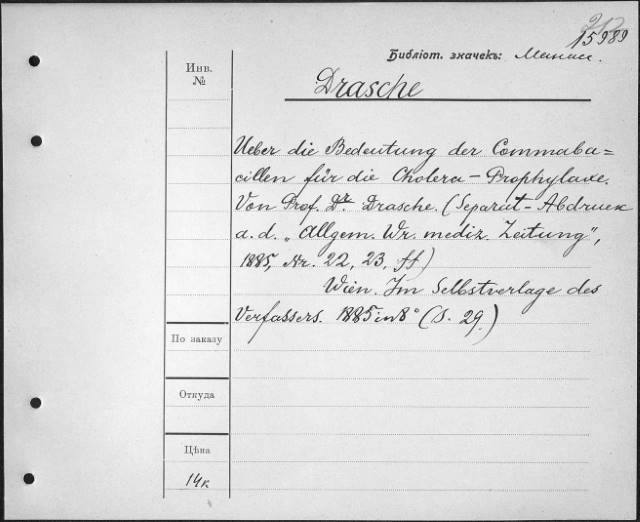 15989
Библіот. значекъ: Манасс.
Инв.
№
Drasche
Ueber die Bedeutung der Commaba=
cillen für die Cholera-Prophylaxe.
Von Prof. Dr. Drasche. (Separat-Abdruck
a. d. „Allgem. Wr. mediz. Zeitung",
1885, Nr. 22, 23, ff)
Wien. Im Selbstverlage des
Verfassers. 1885 in 8° (S. 29.)
По заказу
Откуда
Цѣна
14к